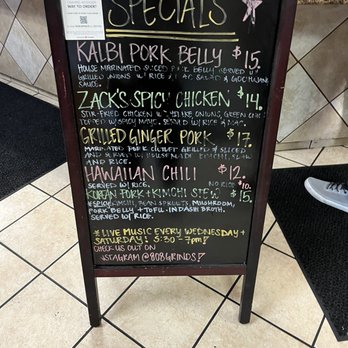 WAY TO ORDER!
SPECIALS
KALBI PORK BELLY $15.
HOUSE MARINATED SLICED PORK BELLY SERVED W/
GRILLED ONIONS W/ RICE SALAD & GOCHUJANG
SAUCE.
ZACK'S SPICY CHICKEN $14.
STIR-FRIED CHICKEN W/ ONIONS, GREEN
TOPPED W/ SPICY MAYO. SERVED W/ RICE & MAC.
GRILLED GINGER PORK $17.
MARINATED PORK GRILLED & SLICED
AND SERVED W/ HOUSEMADE KIMCHI,
AND RICE.
HAWAIIAN CHILI $12.
SERVED W/ RICE. NO RICE $10.
KOREAN PORK + KIMCHI STEW $15.
SPICY KIMCHI, BEAN SPROUTS, MUSHROOM,
PORK BELLY + TOFU IN DASHI BROTH.
SERVED W/ RICE.
*LIVE MUSIC EVERY WEDNESDAY +
SATURDAY! 5:30-7PM!
CHECK US OUT ON
INSTAGRAM @808GRINDS!